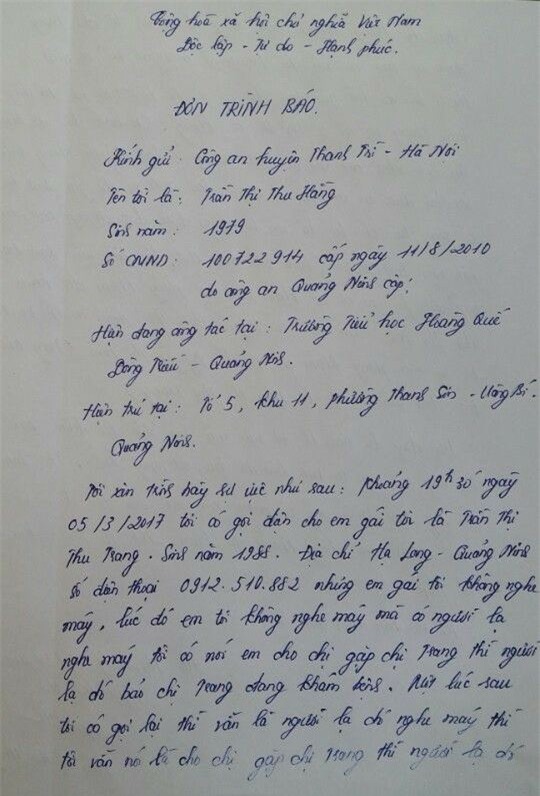 Cộng hoà xã hội chủ nghĩa Việt Nam
Độc lập - Tự do - Hạnh phúc.
ĐƠN TRÌNH BÁO.
Kính gửi: Công an huyện Thanh Trì - Hà Nội
Tên tôi là: Trần Thị Thu Hằng
Sinh năm: 1979
Số CMND: 100722914 cấp ngày 11/8/2010
do công an Quảng Ninh cấp.
Hiện đang công tác tại: Trường Tiểu học Hoàng Quế
Đông Triều - Quảng Ninh.
Hiện trú tại: Tổ 5, khu 11, phường Thanh Sơn - Uông Bí.
Quảng Ninh.
Tôi xin trình bày sự việc như sau: Khoảng 19h30 ngày
05/3/2017 tôi có gọi điện cho em gái tôi là Trần Thị
Thu Trang. Sinh năm 1988. Địa chỉ Hạ Long - Quảng Ninh
số điện thoại 0912.510.882 nhưng em gái tôi không nghe
máy, lúc đó em tôi không nghe máy mà có người lạ
nghe máy tôi có nói em cho chị gặp chị Trang thì người
lạ đó bảo chị Trang đang khám bệnh. Một lúc sau
tôi có gọi lại thì vẫn là người lạ đó nghe máy thì
tôi vẫn nói là cho chị gặp chị Trang thì người lạ đó